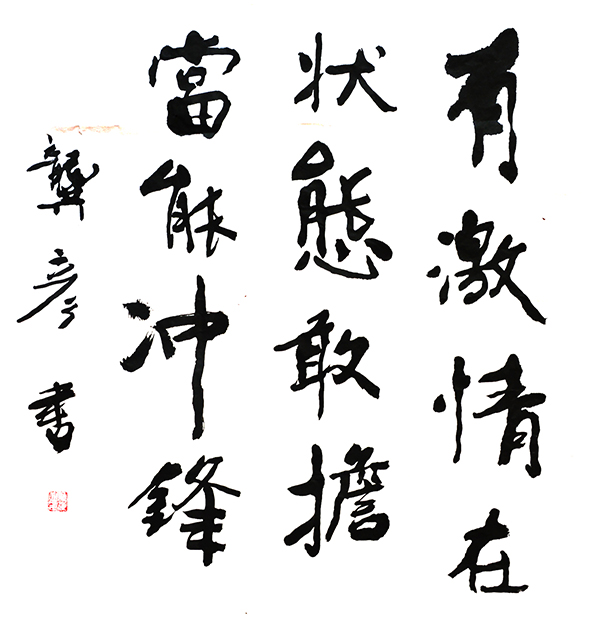 有激情在
状態敢擔
當能冲鋒
龔彦書